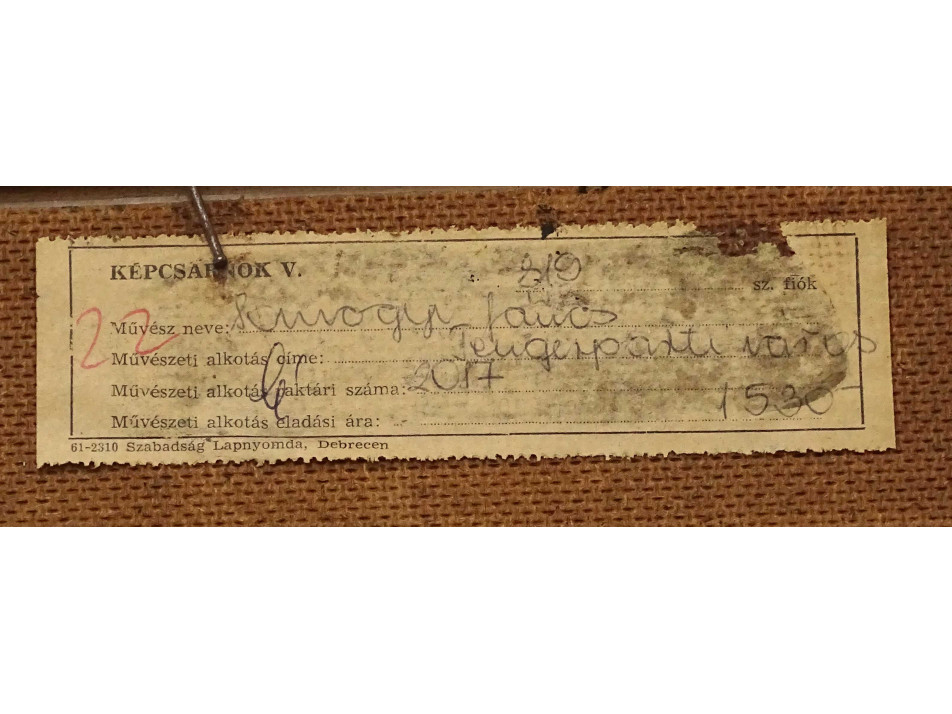 KÉPCSARNOK V.
219 sz. fiók
22
Művész neve: János
Művészeti alkotás címe: Tengerparti város
Művészeti alkotás raktári száma: 2017
Művészeti alkotás eladási ára: 1530
61-2310 Szabadság Lapnyomda, Debrecen